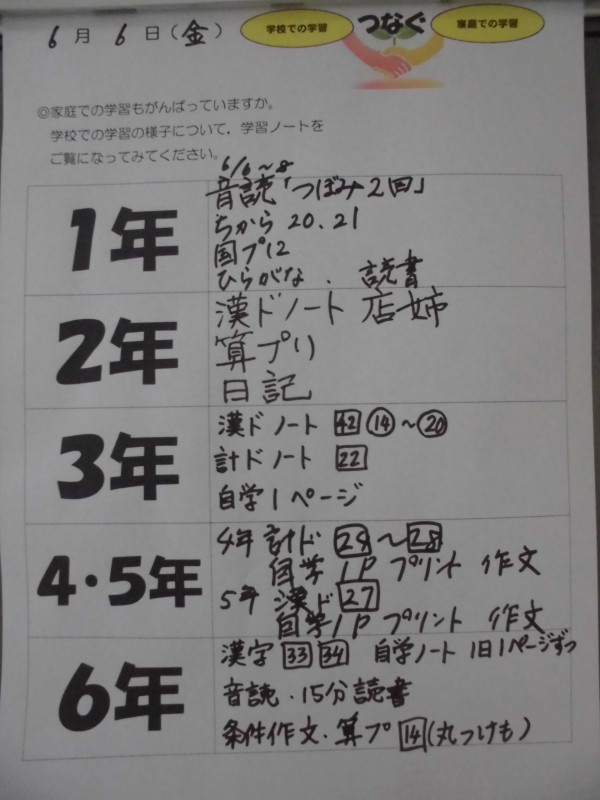 6月6日(金)
学校での学習 つなぐ 家庭での学習
◎家庭での学習もがんばっていますか。
学校での学習の様子について、学習ノートを
ご覧になってみてください。
6/6〜8
1年
音読「つぼみ2回」
ちから 20、21
国プ12
ひらがな 、読書
2年
漢ドノート 店姉
算プリ
日記
3年
漢ドノート 42 ⑭〜⑳
計ドノート 22
自学1ページ
4・5年
4年 計ド 24〜28
自学1P プリント 作文
5年 漢ド 27
自学1P プリント 作文
6年
漢字 33 34 自学ノート 1日1ページずつ
音読・15分読書
条件作文・算プ 14(丸つけも)